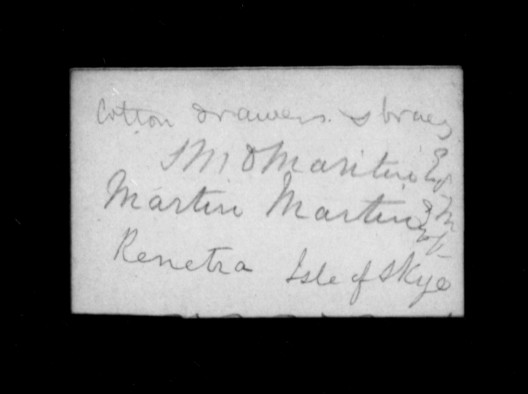 Cotton Drawers. & braces
Martin
Martin Martin
Renetra Isle of Skye